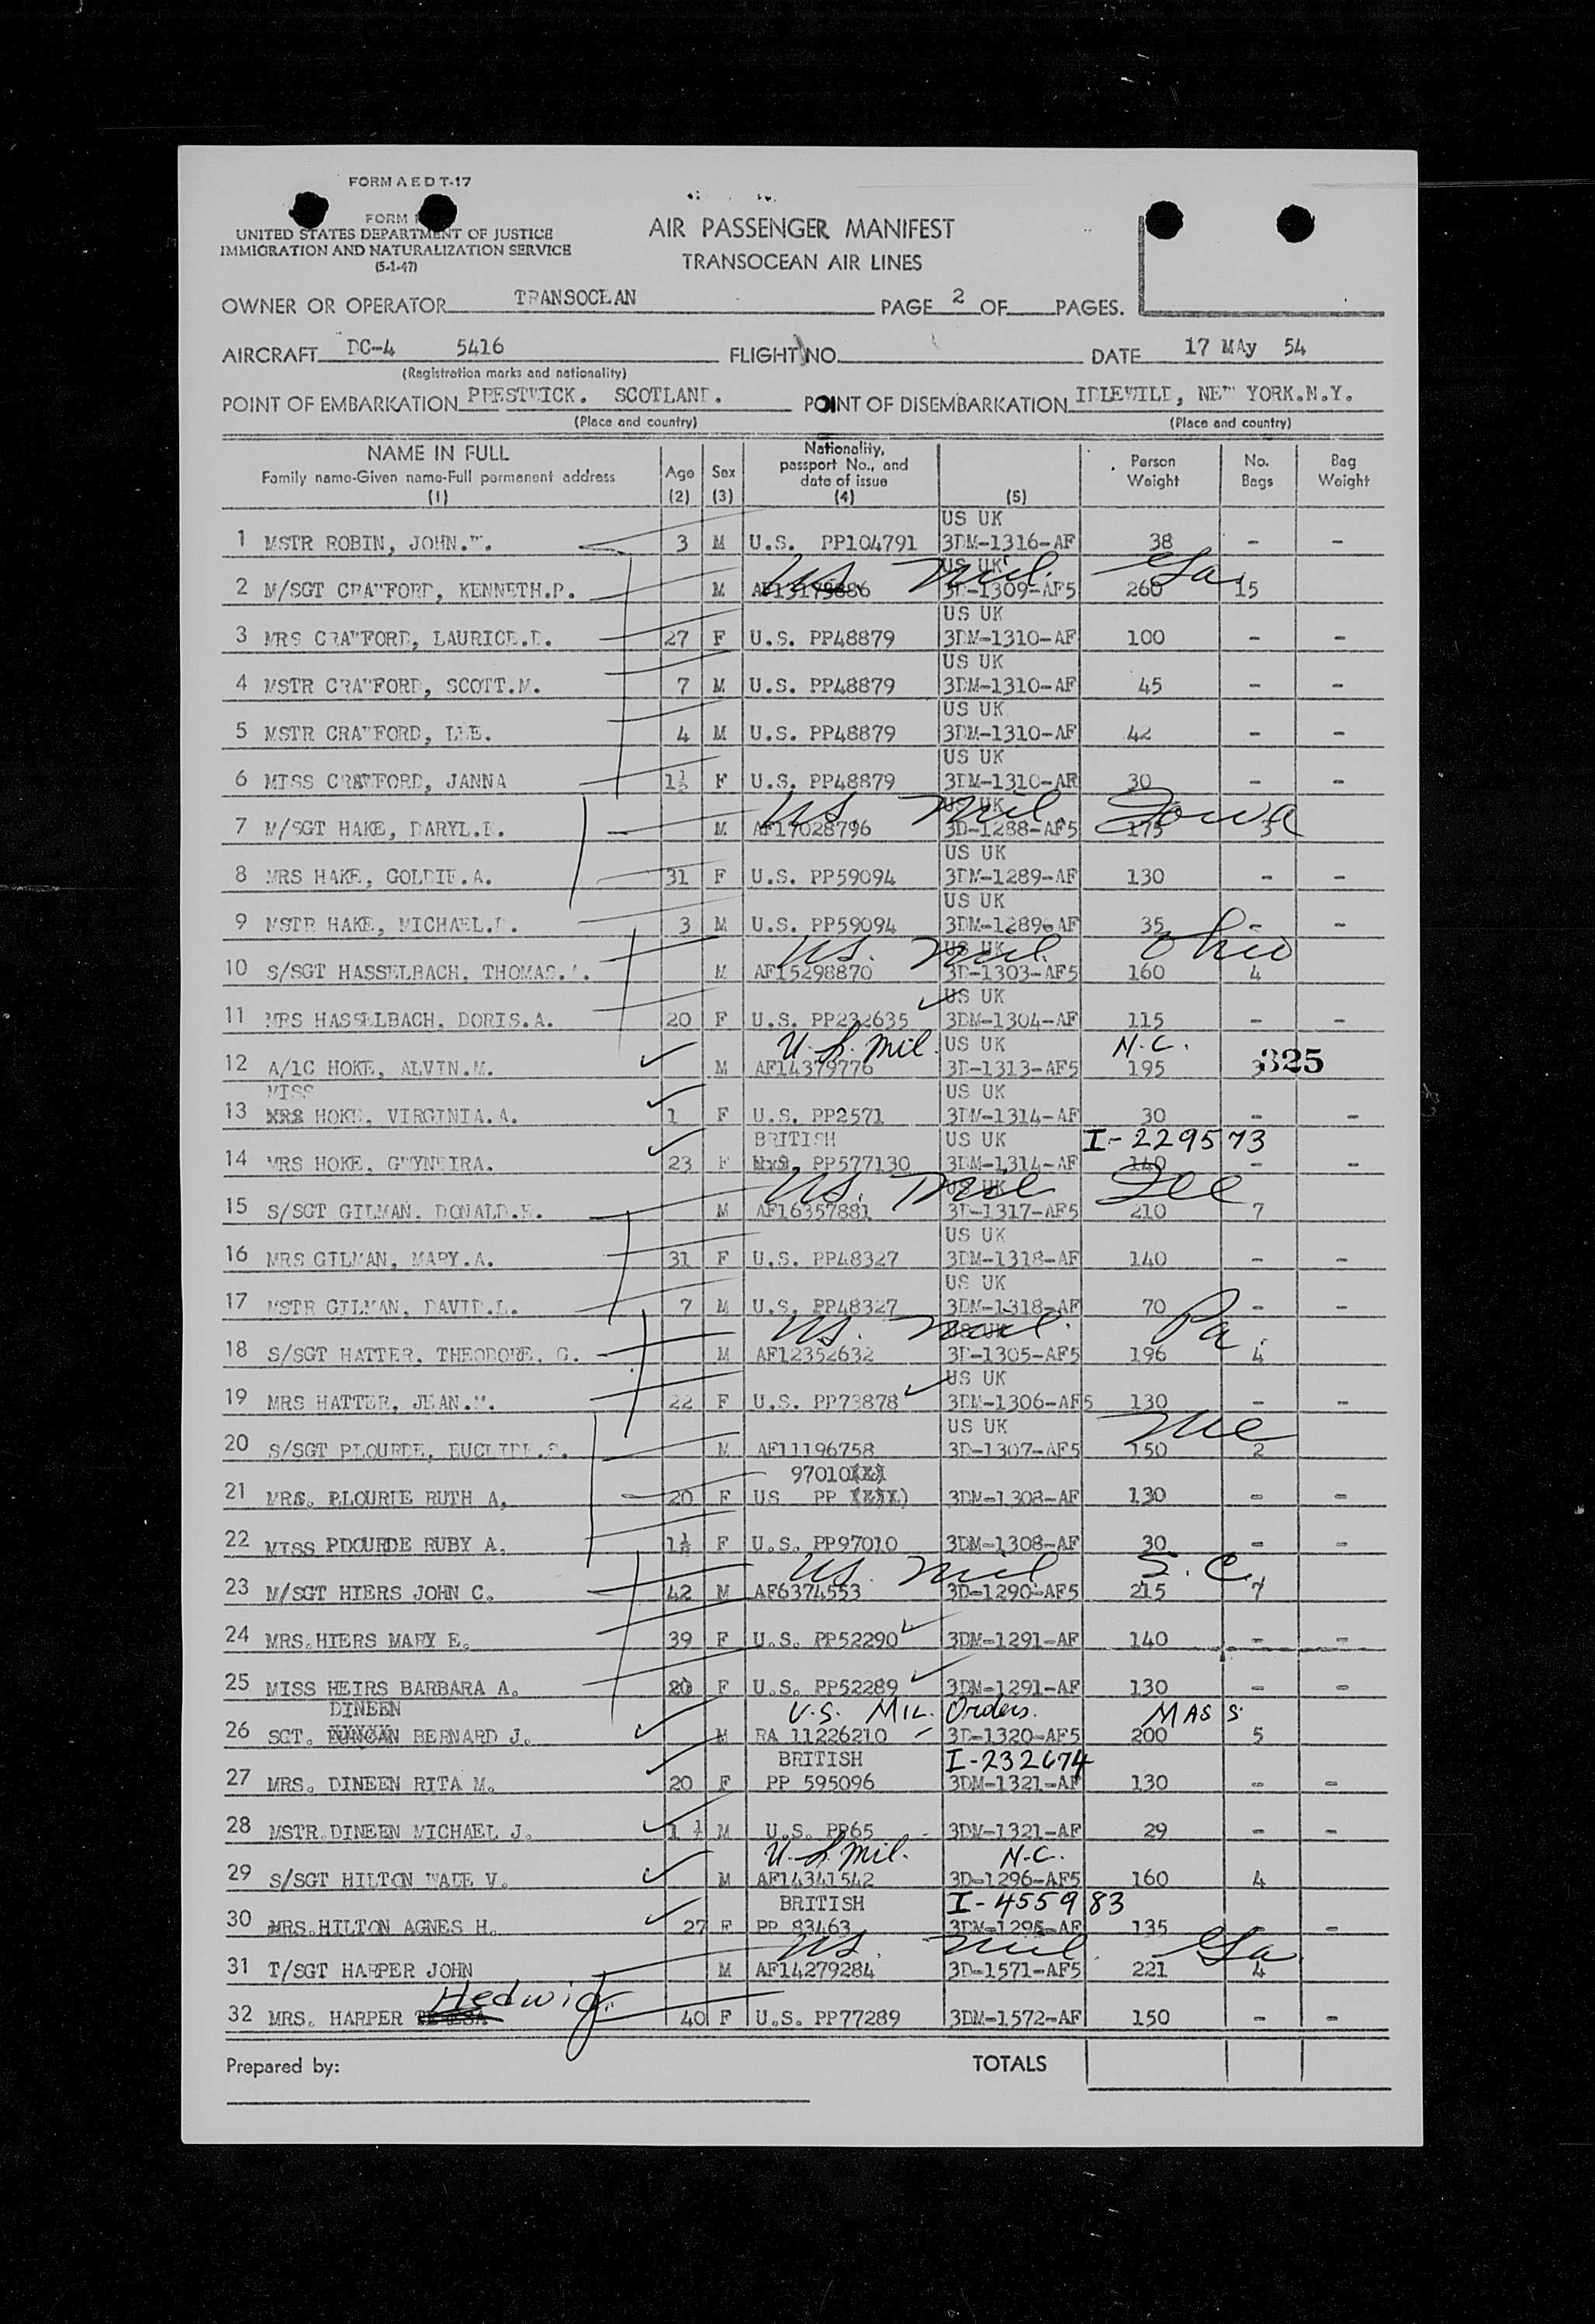 FORM A E D T-17
FORM I
UNITED STATES DEPARTMENT OF JUSTICE
IMMIGRATION AND NATURALIZATION SERVICE
(5-1-47)
AIR PASSENGER MANIFEST
TRANSOCEAN AIR LINES
OWNER OR OPERATOR TRANSOCEAN PAGE 2 OF PAGES.
AIRCRAFT DC-4 5416 FLIGHT NO. DATE 17 MAy 54
(Registration marks and nationality)
POINT OF EMBARKATION PRESTWICK. SCOTLAND. POINT OF DISEMBARKATION IDLEWILD, NEW YORK.N.Y.
(Place and country) (Place and country)
NAME IN FULL Family name-Given name-Full permanent address (1) Age (2) Sex (3) Nationality, passport No., and date of issue (4) (5) Person Weight No. Bags Bag Weight
US UK
1 MSTR ROBIN, JOHN.W. 3 M U.S. PP104791 3DM-1316-AF 38 - -
US Mil. US UK Ga.
2 M/SGT CRAWFORD, KENNETH.P. M AF13175886 3D-1309-AF5 260 15
US UK
3 MRS CRAWFORD, LAURICE.D. 27 F U.S. PP48879 3DM-1310-AF 100 - -
US UK
4 MSTR CRAWFORD, SCOTT.M. 7 M U.S. PP48879 3DM-1310-AF 45 - -
US UK
5 MSTR CRAWFORD, LEE. 4 M U.S. PP48879 3DM-1310-AF 42 - -
US UK
6 MISS CRAWFORD, JANNA 1½ F U.S. PP48879 3DM-1310-AR 30 - -
US Mil. US UK Iowa
7 M/SGT HAKE, DARYL.D. M AF17028796 3D-1288-AF5 175 3
US UK
8 MRS HAKE, GOLDIE.A. 31 F U.S. PP59094 3DM-1289-AF 130 - -
US UK
9 MSTR HAKE, MICHAEL.D. 3 M U.S. PP59094 3DM-1289-AF 35 - -
US. Mil. US UK Ohio
10 S/SGT HASSELBACH, THOMAS. M AF15298870 3D-1303-AF5 160 4
US UK
11 MRS HASSELBACH, DORIS.A. 20 F U.S. PP232635 3DM-1304-AF 115 - -
U.S. Mil. US UK N.C.
12 A/1C HOKE, ALVIN.M. M AF14379776 3D-1313-AF5 195 3 325
MISS US UK
13 MRS HOKE, VIRGINIA.A. 1 F U.S. PP2571 3DM-1314-AF 30 - -
BRITISH US UK I-229573
14 MRS HOKE, GWYNEIRA. 23 F U.S. PP577130 3DM-1314-AF 140 - -
US. Mil US UK Ill
15 S/SGT GILMAN. DONALD.E. M AF16357881 3D-1317-AF5 210 7
US UK
16 MRS GILMAN, MARY.A. 31 F U.S. PP48327 3DM-1318-AF 140 - -
US UK
17 MSTR GILMAN, DAVID.L. 7 M U.S. PP48327 3DM-1318-AF 70 - -
US. Mil. US UK Pa.
18 S/SGT HATTER, THEODORE, G. M AF12352632 3D-1305-AF5 196 4
US UK
19 MRS HATTER, JEAN.M. 22 F U.S. PP73878 3DM-1306-AF5 130 - -
US UK Me
20 S/SGT PLOURDE, EUCLIDE.S. M AF11196758 3D-1307-AF5 150 2
97010
21 MRS. PLOURDE RUTH A, 20 F US PP 3DM-1308-AF 130 - -
22 MISS PDOURDE RUBY A. 1½ F U.S. PP97010 3DM-1308-AF 30 - -
US. Mil S.C.
23 M/SGT HIERS JOHN C. 42 M AF6374553 3D-1290-AF5 215 7
24 MRS.HIERS MARY E. 39 F U.S. PP52290 3DM-1291-AF 140 - -
25 MISS HEIRS BARBARA A. 20 F U.S. PP52289 3DM-1291-AF 130 - -
DINEEN U.S. MIL. Orders. MASS
26 SGT. DUNCAN BERNARD J. M RA 11226210 3D-1320-AF5 200 5
BRITISH I-232674
27 MRS. DINEEN RITA M. 20 F PP 595096 3DM-1321-AF 130 - -
28 MSTR.DINEEN MICHAEL J. 1 M U.S. PP65 3DM-1321-AF 29 - -
U.S. Mil. N.C.
29 S/SGT HILTON WADE V. M AF14341542 3D-1296-AF5 160 4
BRITISH I-455983
30 MRS.HILTON AGNES H. 27 F PP 83463 3DM-1295-AF 135 - -
US. Mil. Ga.
31 T/SGT HARPER JOHN M AF14279284 3D-1571-AF5 221 4
Hedwig
32 MRS. HARPER 40 F U.S. PP77289 3DM-1572-AF 150 - -
Prepared by: TOTALS